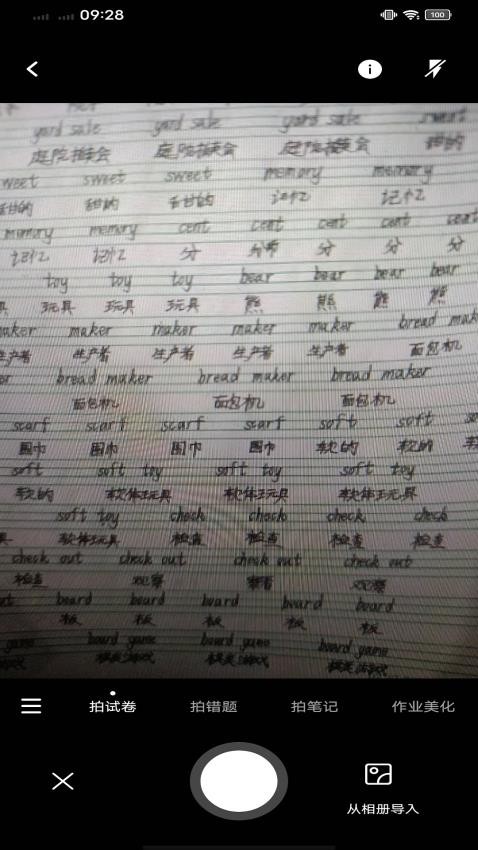 09:28
100
yard sale yard sale yard sale sweet
庭院拍卖会 庭院拍卖会 庭院拍卖会 甜的
weet sweet sweet memory memory
甜的 甜的 甜的 记忆 记忆
memory memory cent cent cent cent cent
记忆 记忆 分 分币 分 分 分
toy toy toy bear bear bear bear
具 玩具 玩具 玩具 熊 熊 熊 熊
maker maker maker maker maker bread mak
生产者 生产者 生产者 生产者 生产者 面包机
er bread maker bread maker bread maker
面包机 面包机 面包机
scarf scarf scarf scarf soft soft so
围巾 围巾 围巾 围巾 软的 软的
soft soft toy soft toy soft toy
软的 软体玩具 软体玩具 软体玩具
soft toy check check check check
具 软体玩具 检查 检查 检查 检查
check out check out check out check out
检查 观察 察看 观察
out board board board board board
板 板 板 板 板
game board game board game board game
棋类游戏 棋类游戏 棋类游戏
拍试卷 拍错题 拍笔记 作业美化
从相册导入